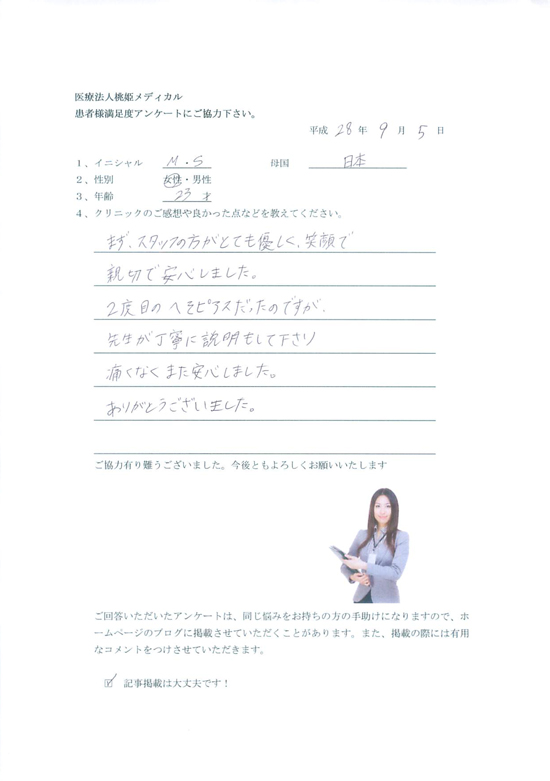 医療法人桃姫メディカル
患者様満足度アンケートにご協力下さい。
平成 28 年 9 月 5 日
1、イニシャル M・S 母国 日本
2、性別 女性・男性
3、年齢 23 才
4、クリニックのご感想や良かった点などを教えてください。
まず、スタッフの方がとても優しく、笑顔で
親切で安心しました。
2度目のへそピアスだったのですが、
先生が丁寧に説明もして下さり
痛くなくまた安心しました。
ありがとうございました。
ご協力有り難うございました。今後ともよろしくお願いいたします
ご回答いただいたアンケートは、同じ悩みをお持ちの方の手助けになりますので、ホ
ームページのブログに掲載させていただくことがあります。また、掲載の際には有用
なコメントをつけさせていただきます。
☑ 記事掲載は大丈夫です！